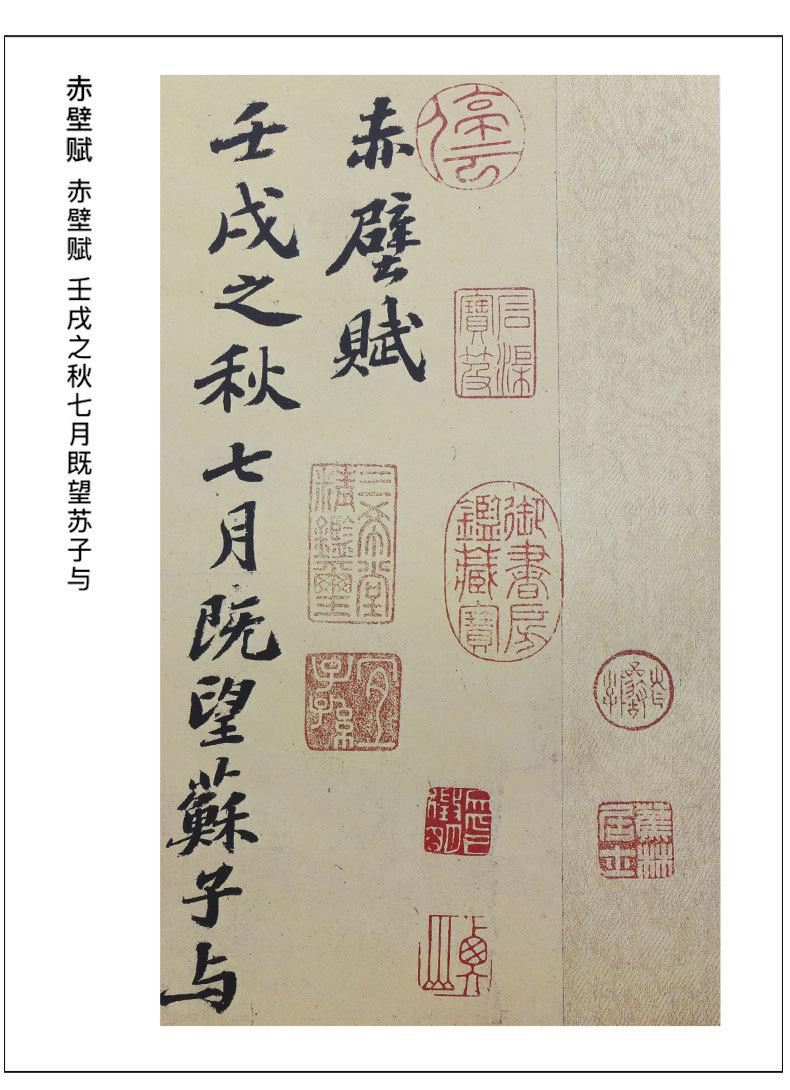 蕉林居士
停雲
石渠寶笈
御書房鑑藏寶
赤壁賦
三希堂精鑑璽
宜子孫
壬戌之秋七月既望蘇子与
赤壁赋 赤壁赋 壬戌之秋七月既望苏子与